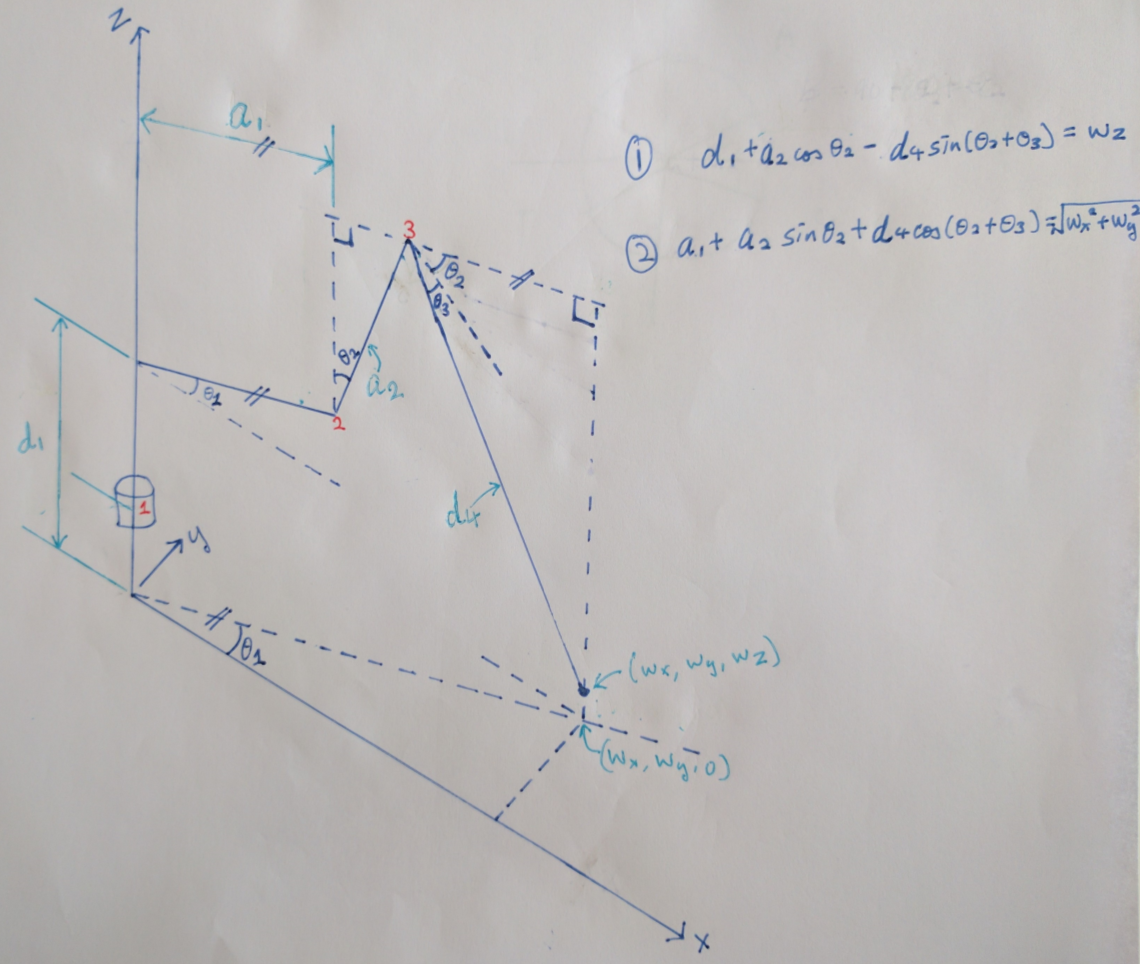 Z
a₁
① d₁ + a₂ cos θ₂ - d₄ sin(θ₂+θ₃) = wz
② a₁ + a₂ sin θ₂ + d₄ cos(θ₂+θ₃) = √wx²+wy²
3
θ₂
θ₃
θ₂
a₂
θ₁
2
d₁
1
d₄
y
θ₁
(wx, wy, wz)
(wx, wy, 0)
x